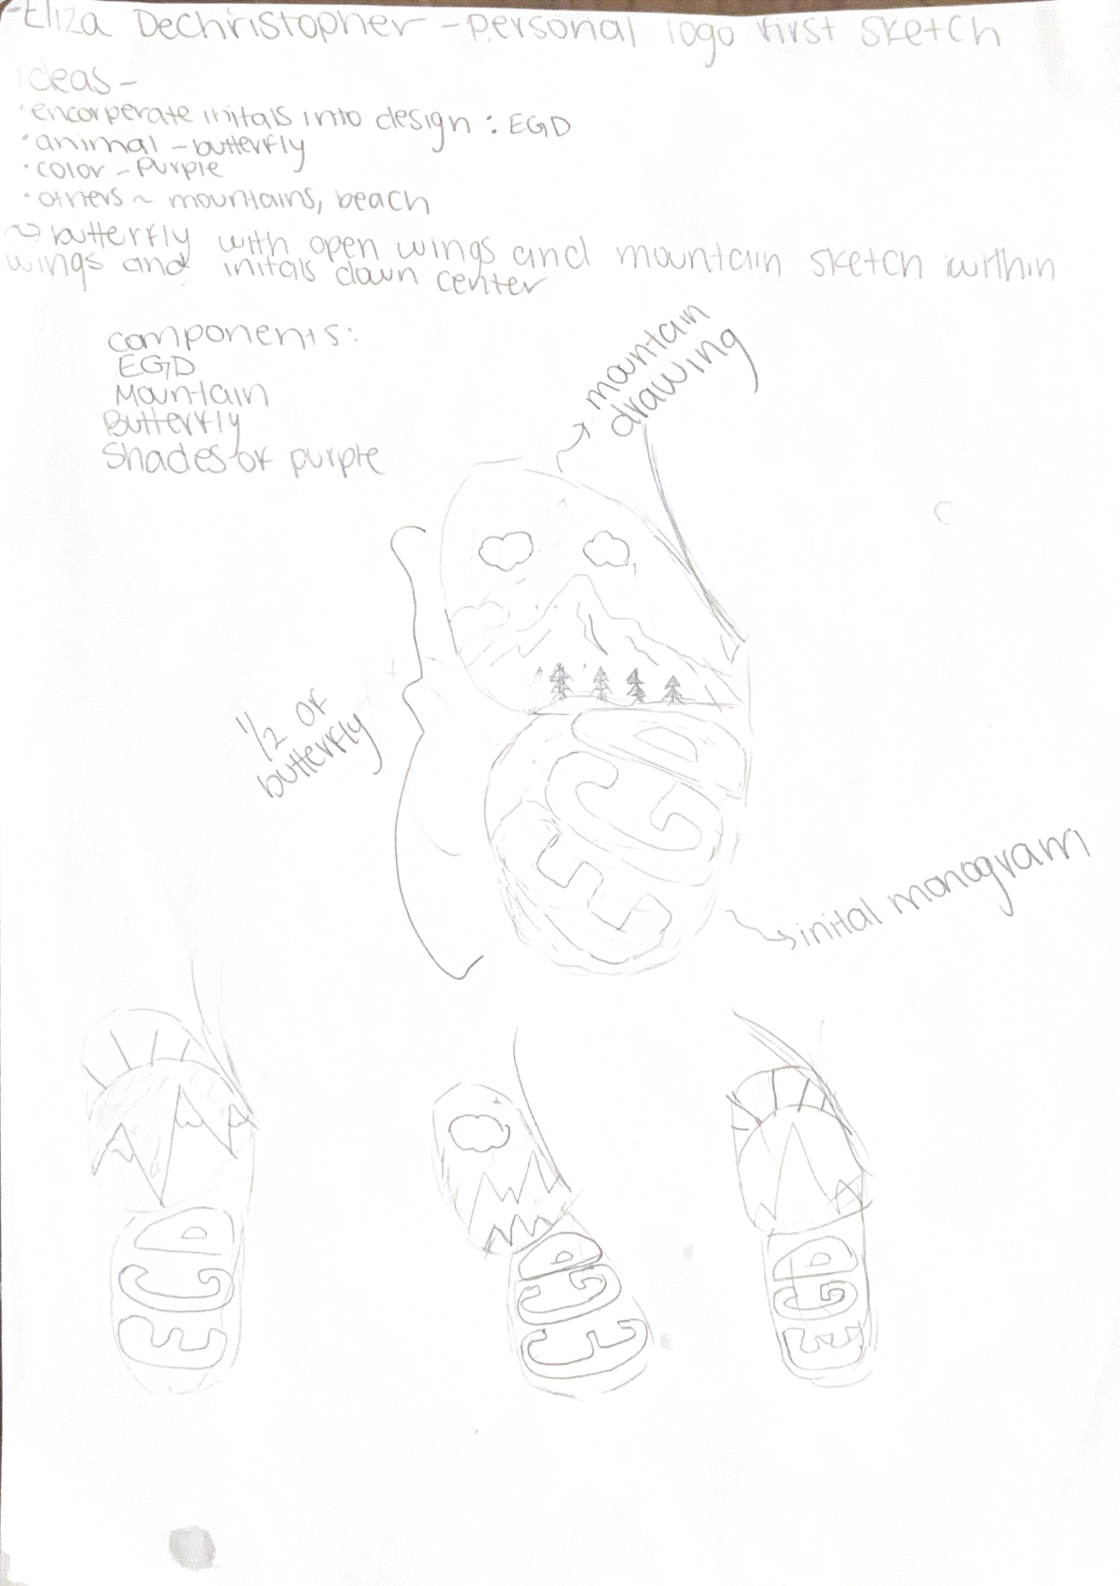 -Eliza Dechristopher - personal logo first sketch
ideas -
· encorperate initals into design : EGD
· animal - butterfly
· color - purple
· others ~ mountains, beach
~> butterfly with open wings and mountain sketch within
wings and initals down center
components:
EGD
Mountain
Butterfly
Shades of purple
mountain
drawing
1/2 of
butterfly
EGD
inital monogram
EGD
EGD
EGD